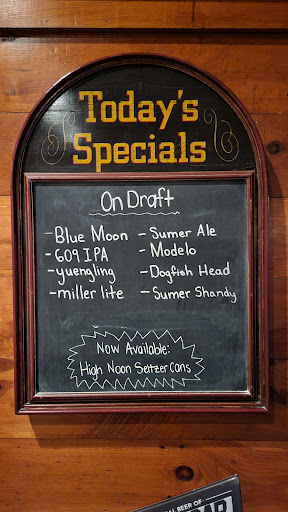 Today's
Specials
On Draft
- Blue Moon
- 609 IPA
- yuengling
- miller lite
- Sumer Ale
- Modelo
- Dogfish Head
- Sumer Shandy
Now Available:
High Noon Seltzer Cans
AL BEER OF